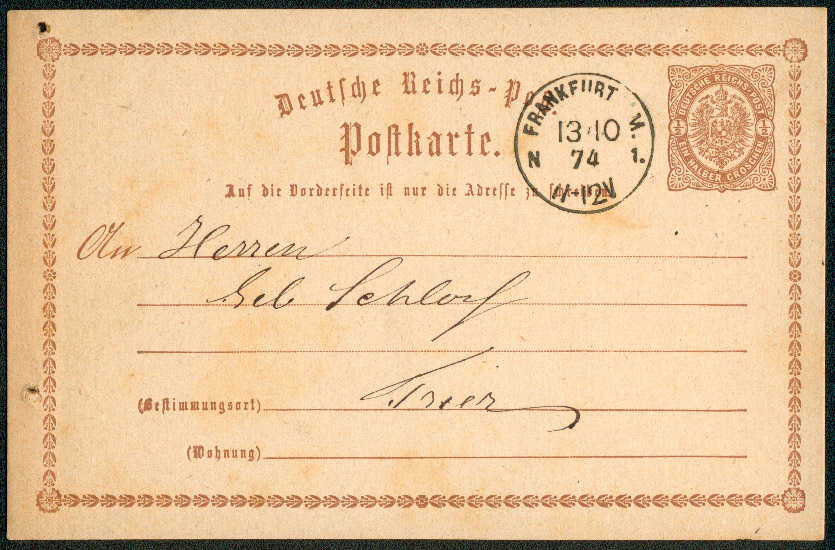 Deutsche Reichs-Po
Postkarte.
Auf die Vorderseite ist nur die Adresse zu schreiben.
FRANKFURT M.
13 10
74
N 1.
11-12V
DEUTSCHE REICHS-POST
1/2 1/2
EIN HALBER GROSCHEN
An Herren
Geb Schloß
Trier
(Bestimmungsort)
(Wohnung)